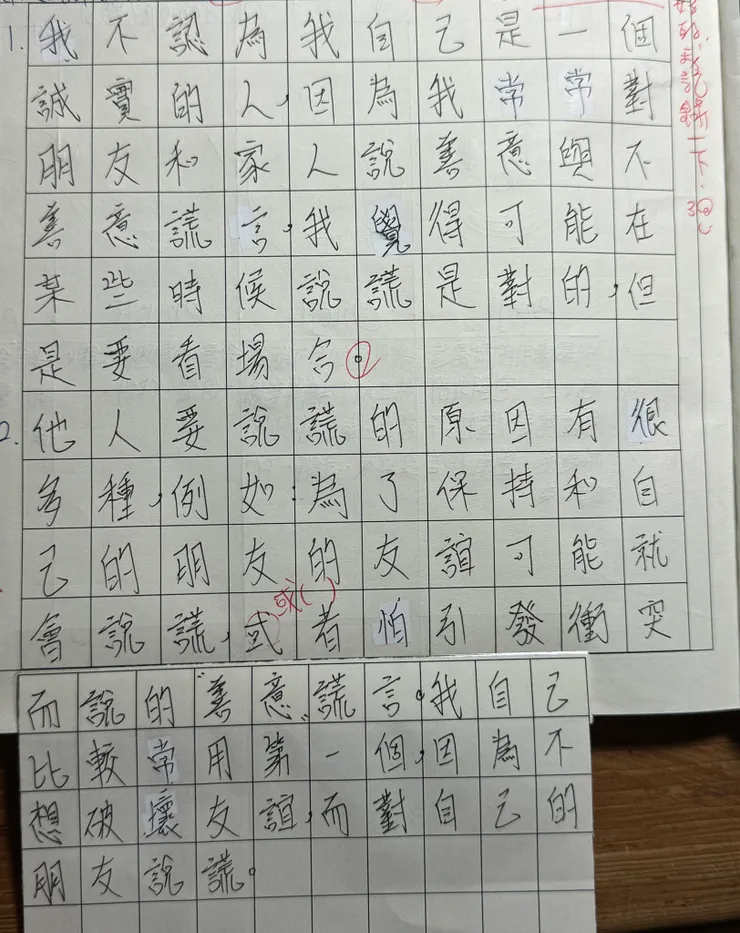 1. 我不認為我自己是一個
誠實的人,因為我常常對
朋友和家人說善意與不
善意謊言,我覺得可能在
某些時候說謊是對的,但
是要看場合。
2. 他人要說謊的原因有很
多種,例如:為了保持和自
己的朋友的友誼可能就
會說謊,或者怕引發衝突
或( )
而說的"善意"謊言。我自己
比較常用第一個,因為不
想破壞友誼,而對自己的
朋友說謊。